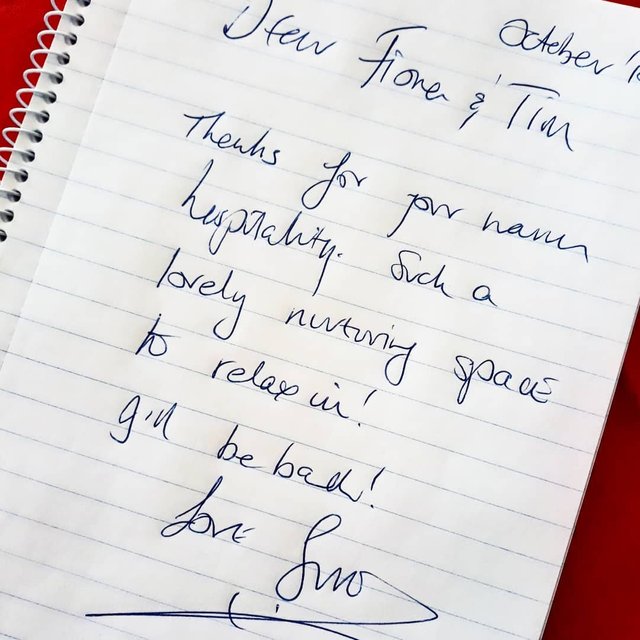 October '1
Dear Fiona & Tim
Thanks for your warm
hospitality. Such a
lovely nurturing space
to relax in!
I'll be back!
Love